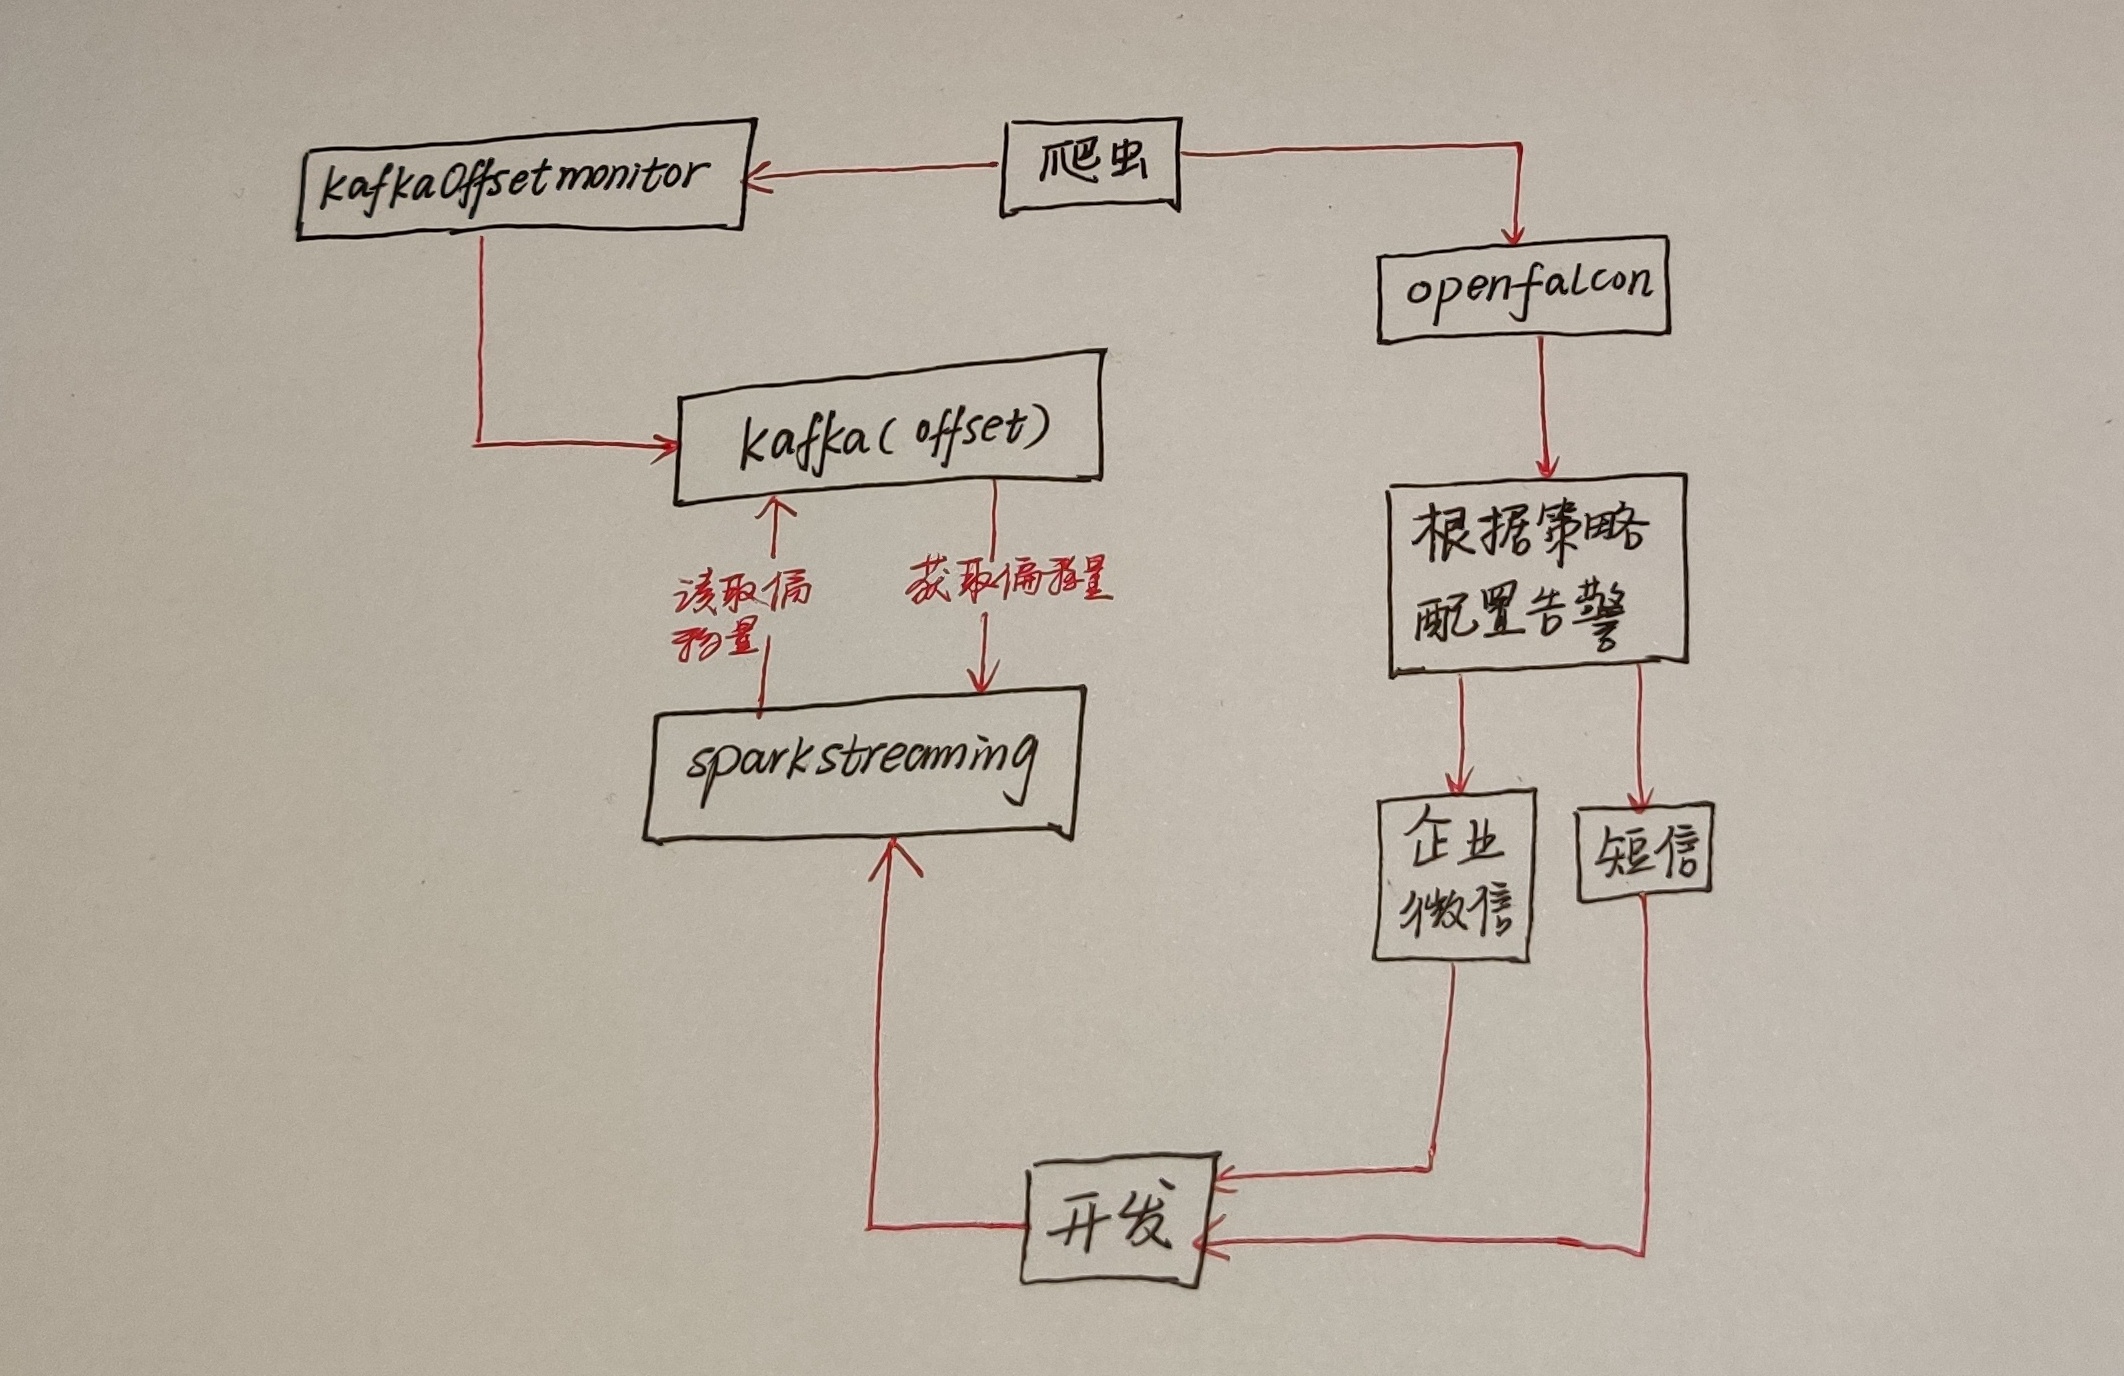 kafkaOffsetmonitor
爬虫
openfalcon
kafka(offset)
根据策略
配置告警
读取偏
移量
获取偏移量
sparkstreaming
企业
微信
短信
开发